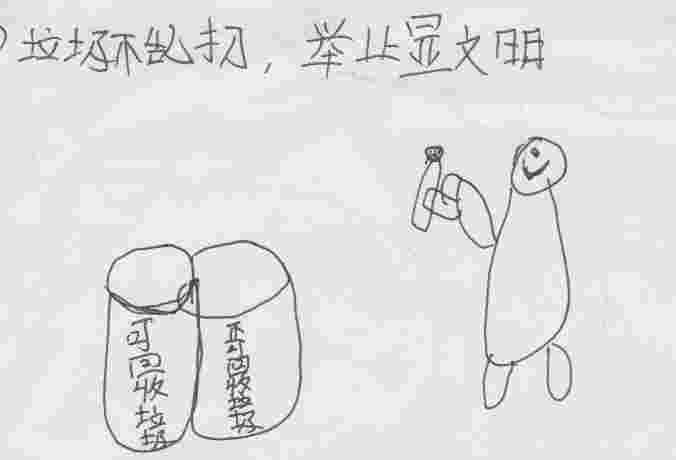 )垃圾不乱扔，举止显文明
可回收垃圾
不可回收垃圾